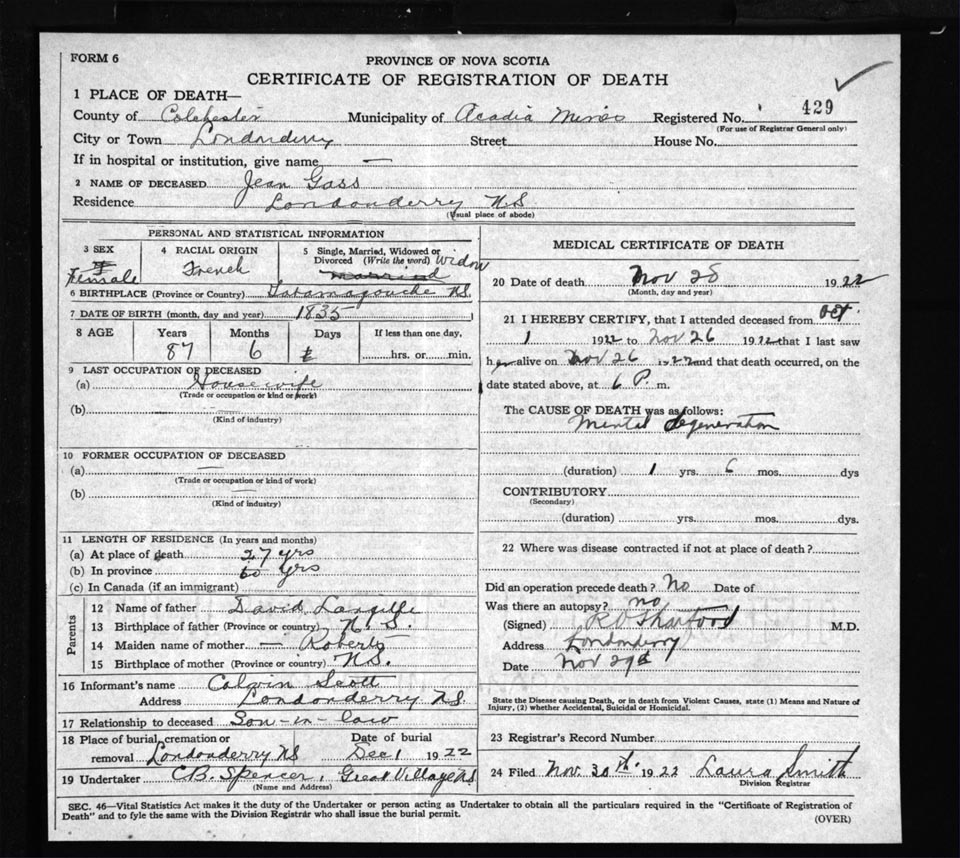 FORM 6
PROVINCE OF NOVA SCOTIA
CERTIFICATE OF REGISTRATION OF DEATH
1 PLACE OF DEATH—
County of Colchester Municipality of Acadia Mines Registered No. 429
(For use of Registrar General only)
City or Town Londonderry Street House No.
If in hospital or institution, give name —
2 NAME OF DECEASED Jean Gass
Residence Londonderry N.S.
(Usual place of abode)
PERSONAL AND STATISTICAL INFORMATION
3 SEX
Female
4 RACIAL ORIGIN
French
5 Single, Married, Widowed or
Divorced (Write the word) Widow
married
6 BIRTHPLACE (Province or Country) Tatamagouche N.S.
7 DATE OF BIRTH (month, day and year) 1835
8 AGE Years Months Days If less than one day,
87 6 hrs. or min.
9 LAST OCCUPATION OF DECEASED
(a) House wife
(Trade or occupation or kind or work)
(b)
(Kind of industry)
10 FORMER OCCUPATION OF DECEASED
(a) —
(Trade or occupation or kind of work)
(b) —
(Kind of industry)
11 LENGTH OF RESIDENCE (In years and months)
(a) At place of death 27 yrs
(b) In province yrs
(c) In Canada (if an immigrant)
Parents
12 Name of father David Langille
13 Birthplace of father (Province or country) N.S.
14 Maiden name of mother — Roberts
15 Birthplace of mother (Province or country) N.S.
16 Informant's name Calvin Scott
Address Londonderry N.S.
17 Relationship to deceased Son-in-law
18 Place of burial, cremation or Date of burial
removal Londonderry NS Dec 1 1922
19 Undertaker C.B. Spencer, Great Village N.S.
(Name and Address)
MEDICAL CERTIFICATE OF DEATH
20 Date of death Nov 28 1922
(Month, day and year)
21 I HEREBY CERTIFY, that I attended deceased from Oct.
1 1922 to Nov 26 1922 that I last saw
her alive on Nov 26 1922 and that death occurred, on the
date stated above, at 6 P. m.
The CAUSE OF DEATH was as follows:
Mental degeneration
(duration) 1 yrs. 6 mos. dys
CONTRIBUTORY
(Secondary)
(duration) yrs. mos. dys.
22 Where was disease contracted if not at place of death?
Did an operation precede death? No Date of
Was there an autopsy? no
(Signed) M.D.
Address Londonderry
Date Nov 29th
State the Disease causing Death, or in death from Violent Causes, state (1) Means and Nature of
Injury, (2) whether Accidental, Suicidal or Homicidal.
23 Registrar's Record Number
24 Filed Nov. 30th. 1922 Laura Smith
Division Registrar
SEC. 46—Vital Statistics Act makes it the duty of the Undertaker or person acting as Undertaker to obtain all the particulars required in the "Certificate of Registration of
Death" and to fyle the same with the Division Registrar who shall issue the burial permit.
(OVER)